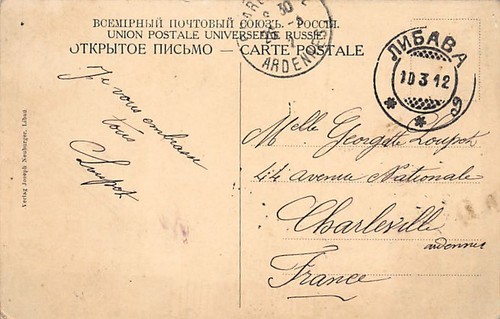 ВСЕМІРНЫЙ ПОЧТОВЫЙ СОЮЗЪ. РОССІЯ.
UNION POSTALE UNIVERSELLE RUSSIE
ОТКРЫТОЕ ПИСЬМО — CARTE POSTALE
ARDENNES
ЛИБАВА
10 3 12
Je vous embrasse
tous
Loupot
Melle Georgette Loupot
44 avenue Nationale
Charleville
ardennes
France
Verlag Joseph Neuburger, Libau